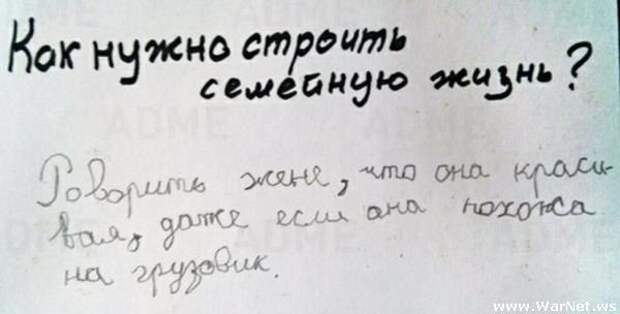 Как нужно строить
семейную жизнь?
Говорить жене, что она краси-
вая, даже если она похожа
на грузовик.
ADME
www.WarNet.ws